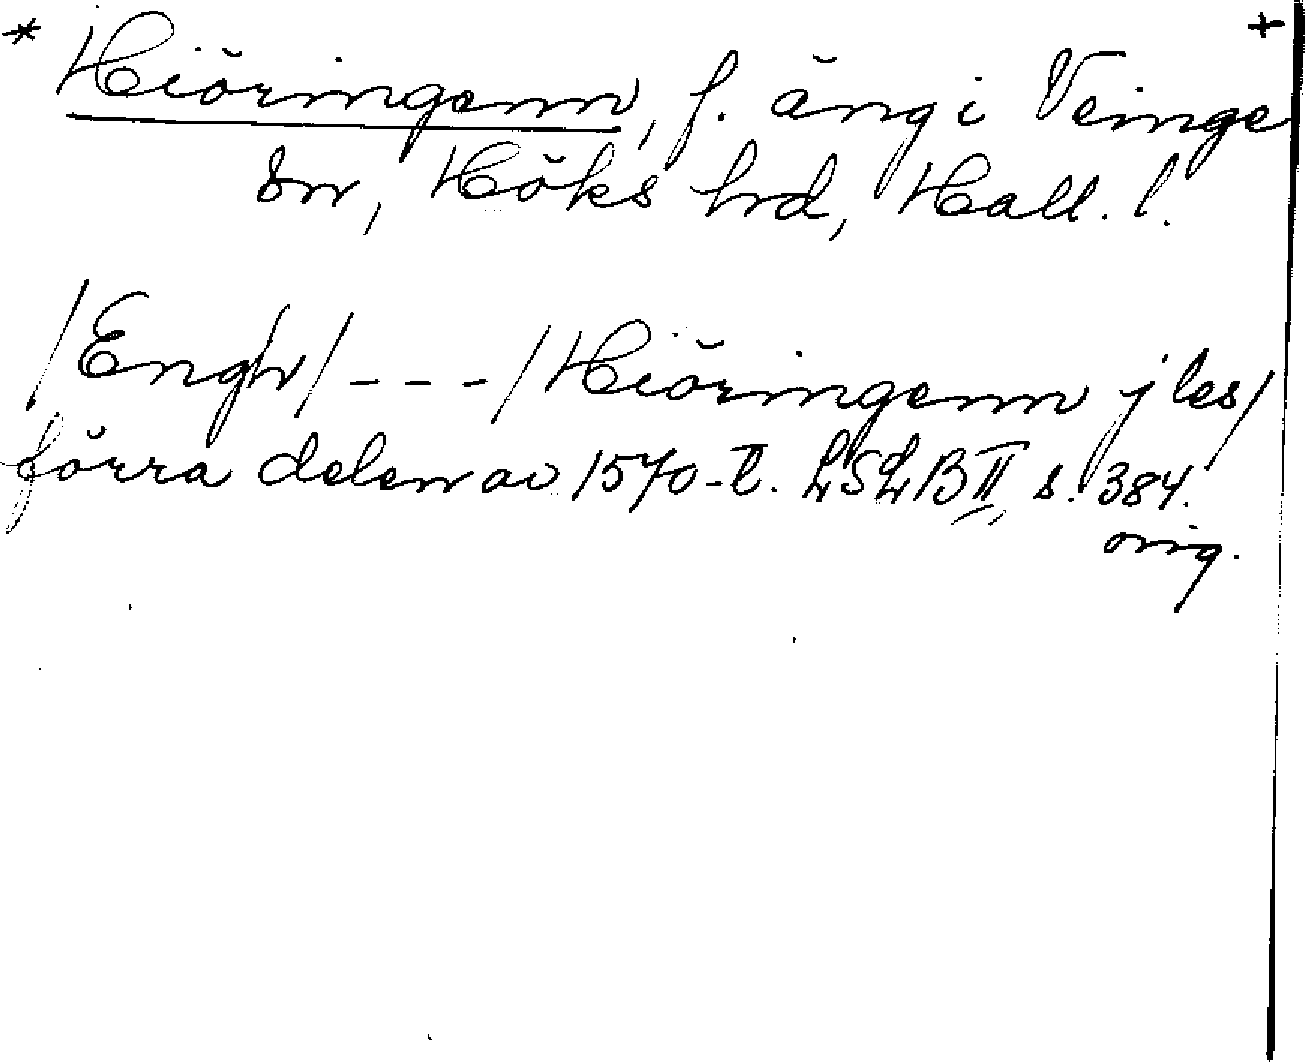 * Hiöringenn, f. äng i Veinge +
sn, Höks hrd, Hall. l.
/Engh/ - - - /Hiöringenn j les/
förra delen av 1570-t. LSLB II, s. 384.
orig.